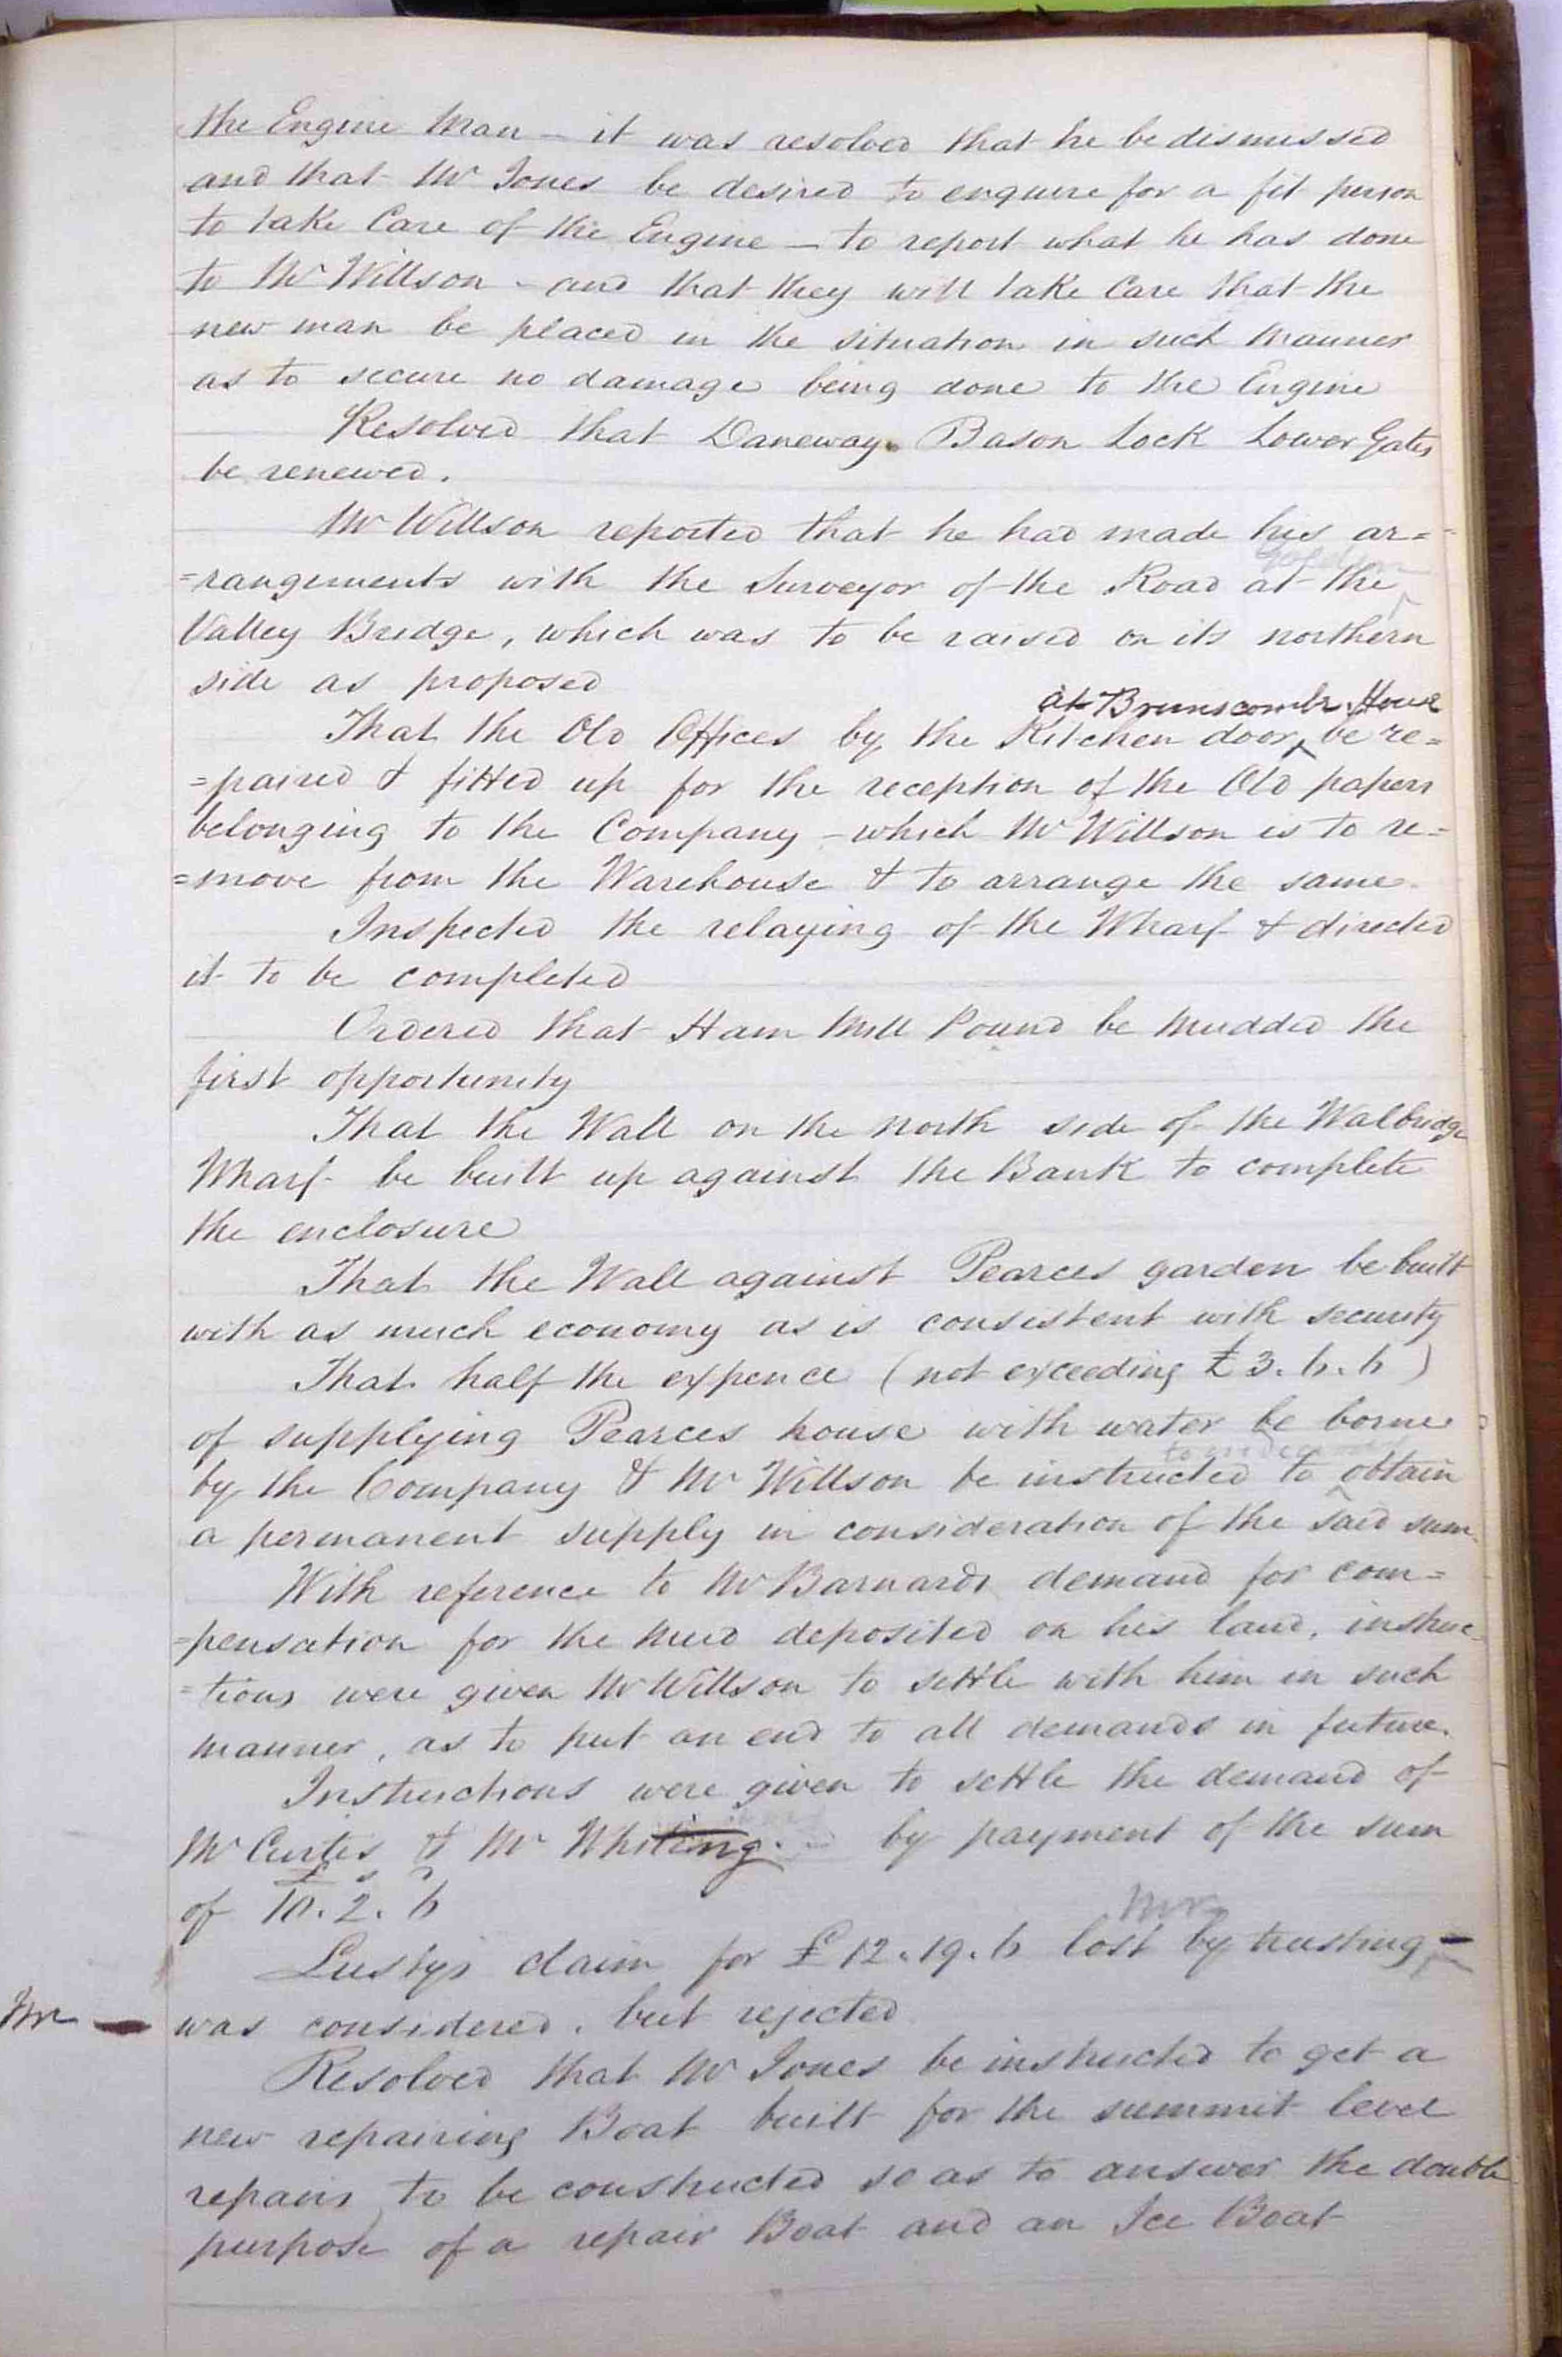 the Engine Man - it was resolved that he be dismissed
and that Mr Jones be desired to enquire for a fit person
to take Care of the Engine - to report what he has done
to Mr Willson - and that they will take Care that the
new man be placed in the situation in such Manner
as to secure no damage being done to the Engine
Resolved that Daneway Bason Lock Lower Gates
be renewed.
Mr Willson reported that he had made his ar=
=rangements with the Surveyor of the Road at the
Valley Bridge, which was to be raised on its northern
side as proposed
at Brimscomb House
That the Old Offices by the Kitchen door ^ be re=
=paired & fitted up for the reception of the Old papers
belonging to the Company - which Mr Willson is to re=
=move from the Warehouse & to arrange the same.
Inspected the relaying of the Wharf & directed
it to be completed
Ordered that Ham Mill Pound be Mudded the
first opportunity
That the Wall on the North side of the Walbridge
Wharf be built up against the Bank to complete
the enclosure
That the Wall against Pearces garden be built
with as much economy as is consistent with security
That half the expence (not exceeding £3.6.6)
of supplying Pearces house with water be borne
by the Company & Mr Willson be instructed to ^ obtain
a permanent supply in consideration of the said sum.
With reference to Mr Barnards demand for com=
=pensation for the Mud deposited on his land, instruc=
=tions were given Mr Willson to settle with him in such
manner, as to put an end to all demands in future.
Instructions were given to settle the demand of
Mr Curtis & Mr Whiting. by payment of the sum
£ s D
of 10.2.6
Mr
Lustys claim for £12.19.6 lost by trusting ^ -
Mr - was considered, but rejected
Resolved that Mr Jones be instructed to get a
new repairing Boat built for the summit level
repairs, to be constructed so as to answer the double
purpose of a repair Boat and an Ice Boat